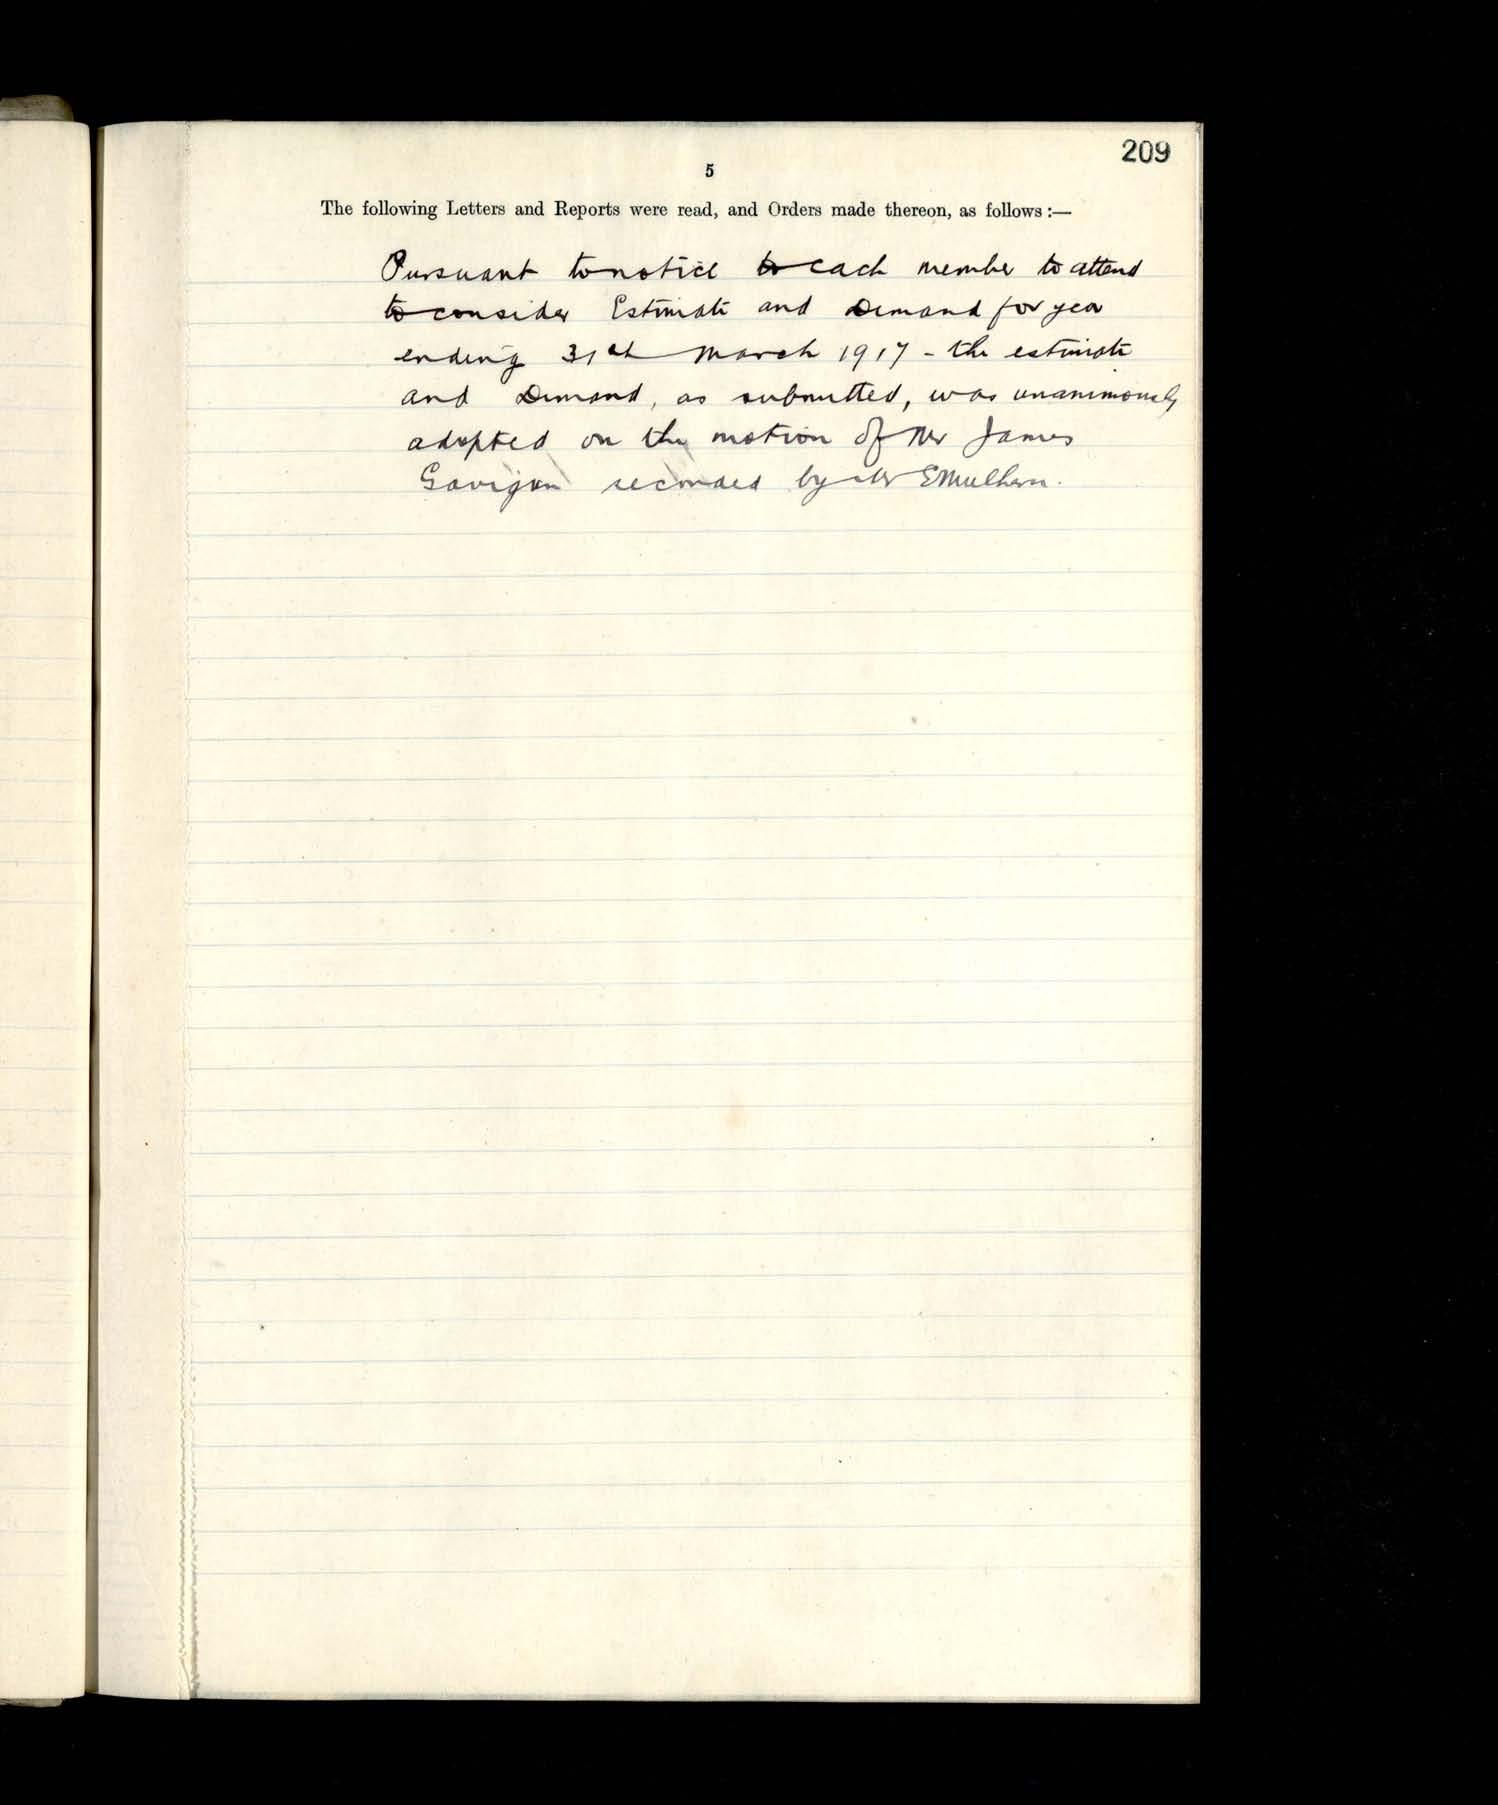 209
5
The following Letters and Reports were read, and Orders made thereon, as follows :—
Pursuant to notice to each member to attend
to consider Estimate and Demand for year
ending 31st March 1917 - the estimate
and Demand, as submitted, was unanimously
adopted on the motion of Mr James
Gavigan seconded by Mr E Mulhern.